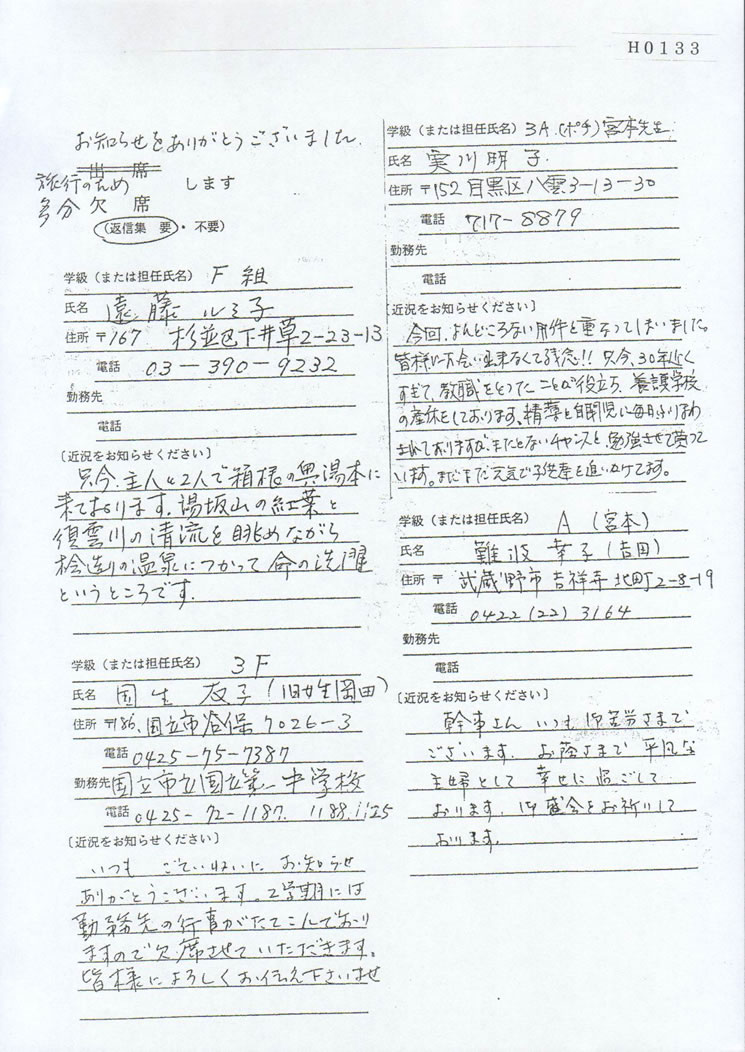 H0133
お知らせをありがとうございました.
出席
旅行のため します
多分 欠 席
(返信集 要・不要)
学級(または担任氏名) F 組
氏名 遠藤ルミ子
住所 〒167 杉並区下井草2-23-13
電話 03-390-9232
勤務先
電話
〔近況をお知らせください〕
只今、主人と2人で箱根の奥湯本に
来ております。湯坂山の紅葉と
須雲川の清流を眺めながら
桧造りの温泉につかって命の洗濯
というところです.
学級(または担任氏名) 3F
氏名 国生 友子(旧姓岡田)
住所 〒186. 国立市谷保 7026-3
電話 0425-75-7387
勤務先 国立市立国立第一中学校
電話 0425-72-1187. 1188.
〔近況をお知らせください〕
いつも ごていねいに お知らせ
ありがとうございます。2学期には
勤務先の行事がたてこんでおり
ますので欠席させていただきます。
皆様によろしくお伝え下さいませ
学級(または担任氏名) 3A.(ポチ)宮本先生.
氏名 実川明子
住所 〒152 目黒区八雲3-13-30
電話 717-8879
勤務先
電話
〔近況をお知らせください〕
今回、よんどころない用件と重なってしまいました。
皆様にお会い出来なくて残念!! 只今、30年近く
すぎて、教職をとってたことが役立ち、養護学校
の産休をしております。精薄と自閉児に毎日ふりまわ
されておりますが、またとないチャンスと勉強させて貰って
います。まだまだ元気で子供達を追いかけてます。
学級(または担任氏名) A (宮本)
氏名 難波 幸子(吉田)
住所 〒 武蔵野市吉祥寺北町2-8-19
電話 0422(22)3164
勤務先
電話
〔近況をお知らせください〕
幹事さん いつも御苦労さまで
ございます. お蔭さまで 平凡な
主婦として 幸せに過ごして
おります. 御盛会をお祈りして
おります.